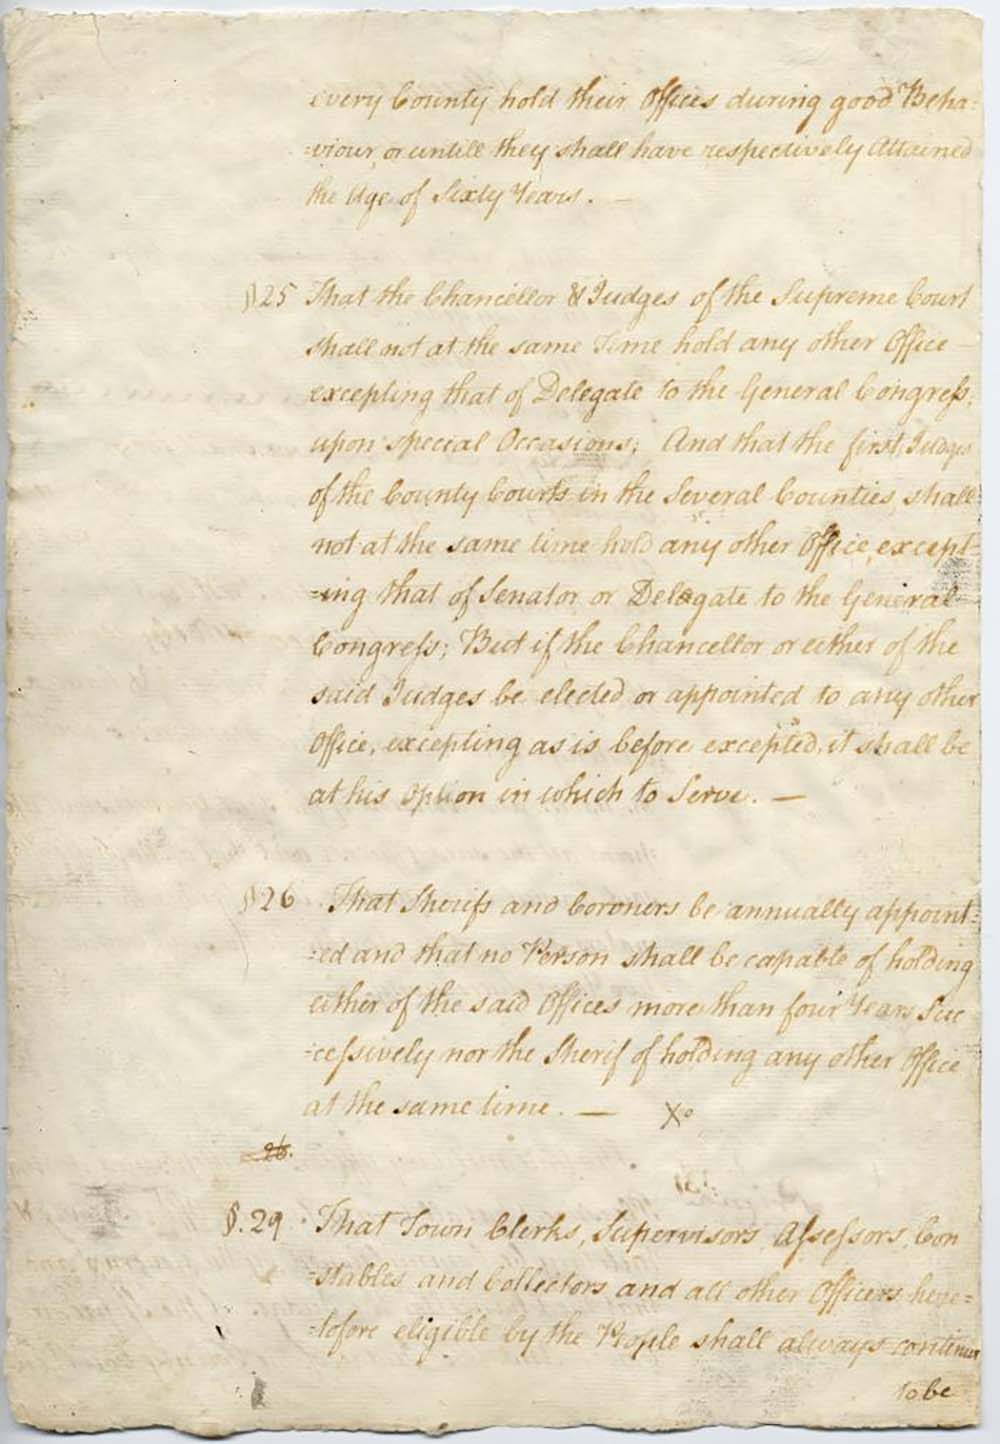 every County hold their Offices during good Beha=
=viour, or untill they shall have respectively Attained
the Age of Sixty Years. —
§25 That the Chancellor & Judges of the Supreme Court
shall not at the same Time hold any other Office —
excepting that of Delegate to the General Congreſs,
upon special Occasions; And that the first Judges
of the County Courts in the Several Counties, shall
not at the same time hold any other Office, except=
=ing that of Senator or Delegate to the General
Congreſs; But if the Chancellor or either of the
said Judges be elected or appointed to any other
Office, excepting as is before excepted, it shall be
at his Option in which to Serve. —
§26 That Sherifs and Coroners be annually appoint=
=ed and that no Person shall be capable of holding
either of the said Offices more than four Years Suc
=ceſsively nor the Sherif of holding any other Office
at the same time. — X
26.
§.29 That Town Clerks, Supervisors, Aſseſsors, Con
=stables and Collectors and all other Officers here=
=tofore eligible by the People shall always continue
to be